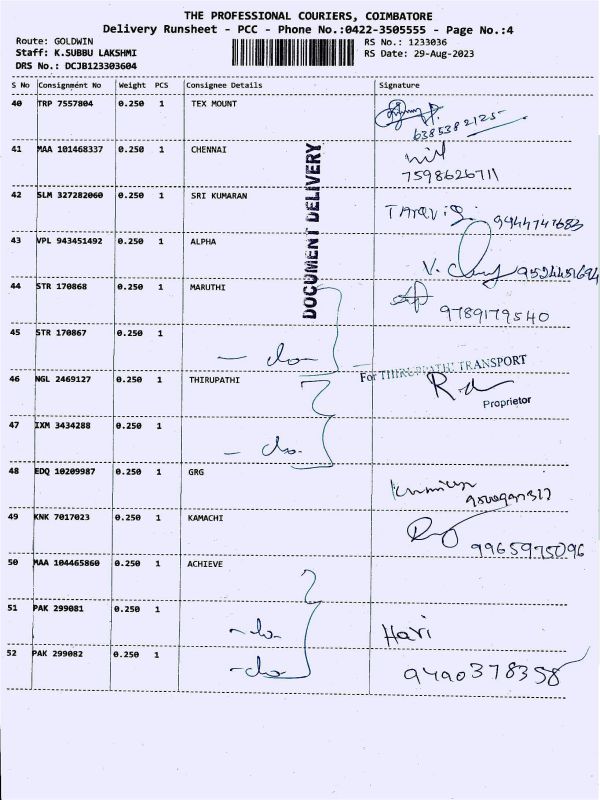 THE PROFESSIONAL COURIERS, COIMBATORE
Delivery Runsheet - PCC - Phone No.:0422-3505555 - Page No.:4
Route: GOLDWIN RS No.: 1233036
Staff: K.SUBBU LAKSHMI RS Date: 29-Aug-2023
DRS No.: DCJB123303604
S No Consignment No Weight PCS Consignee Details Signature
40 TRP 7557804 0.250 1 TEX MOUNT
6385382125
41 MAA 101468337 0.250 1 CHENNAI
7598626711
DOCUMENT DELIVERY
42 SLM 327282060 0.250 1 SRI KUMARAN
9944747683
43 VPL 943451492 0.250 1 ALPHA
44 STR 170868 0.250 1 MARUTHI
9789179540
45 STR 170867 0.250 1
- do -
For THIRUPPATHI TRANSPORT
46 NGL 2469127 0.250 1 THIRUPATHI
Proprietor
47 IXM 3434288 0.250 1
- do -
48 EDQ 10209987 0.250 1 GRG
49 KNK 7017023 0.250 1 KAMACHI
9965975096
50 MAA 104465860 0.250 1 ACHIEVE
51 PAK 299081 0.250 1
- do - Hari
52 PAK 299082 0.250 1
- do - 9790378358